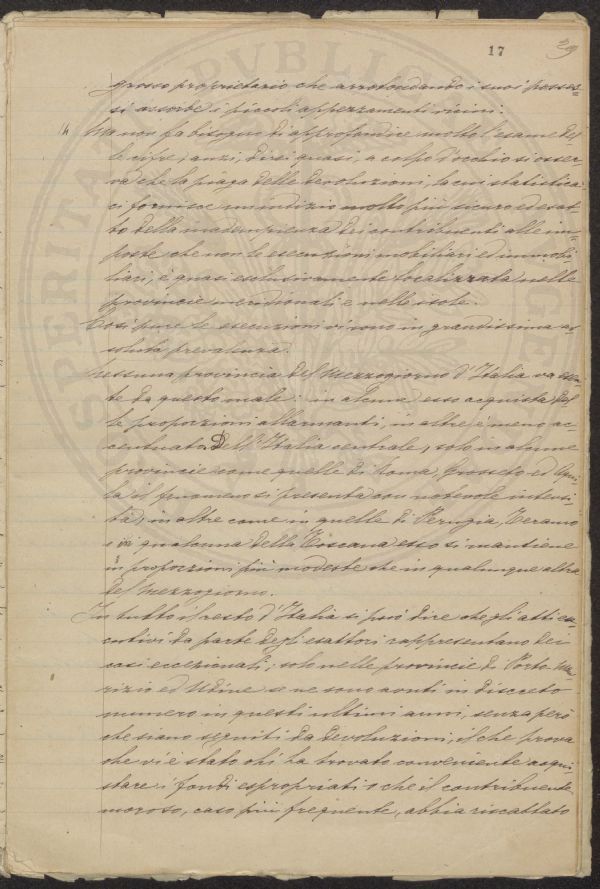 17
39
grosso proprietario che arrotondando i suoi posses=
si assorbe i piccoli appezzamenti vicini.
Ma non fa bisogno di approfondire molto l'esame del=
le cifre; anzi, direi quasi, a colpo d'occhio si osser
va che la piaga delle devoluzioni, la cui statistica
ci fornisce un indizio molto più sicuro ed esat=
to della inadempienza dei contribuenti alle im=
poste, che non le esecuzioni mobiliari ed immobi=
liari, è quasi esclusivamente localizzata nelle
provincie meridionali e nelle isole.
Così pure le esecuzioni vi sono in grandissima as=
soluta prevalenza.
Nessuna provincia del Mezzogiorno d'Italia va esen=
te da questo male: in alcune esso acquista del=
le proporzioni allarmanti, in altre è meno ac=
centuato. Dell'Italia centrale, solo in alcune
provincie come quelle di Roma, Grosseto ed Aqui=
la il fenomeno si presenta con notevole intensi=
tà, in altre come in quelle di Perugia, Teramo
e in qualcuna della Toscana esso si mantiene
in proporzioni più modeste che in qualunque altra
del Mezzogiorno.
In tutto il resto d'Italia si può dire che gli atti ese=
cutivi da parte degli esattori rappresentano dei
casi eccezionali; solo nelle provincie di Porto Mau=
rizio ed Udine se ne sono avuti in discreto
numero in questi ultimi anni, senza però
che siano seguiti da devoluzioni, il che prova
che vi è stato chi ha trovato conveniente acqui=
stare i fondi espropriati o che il contribuente
moroso, caso più frequente, abbia riscattato